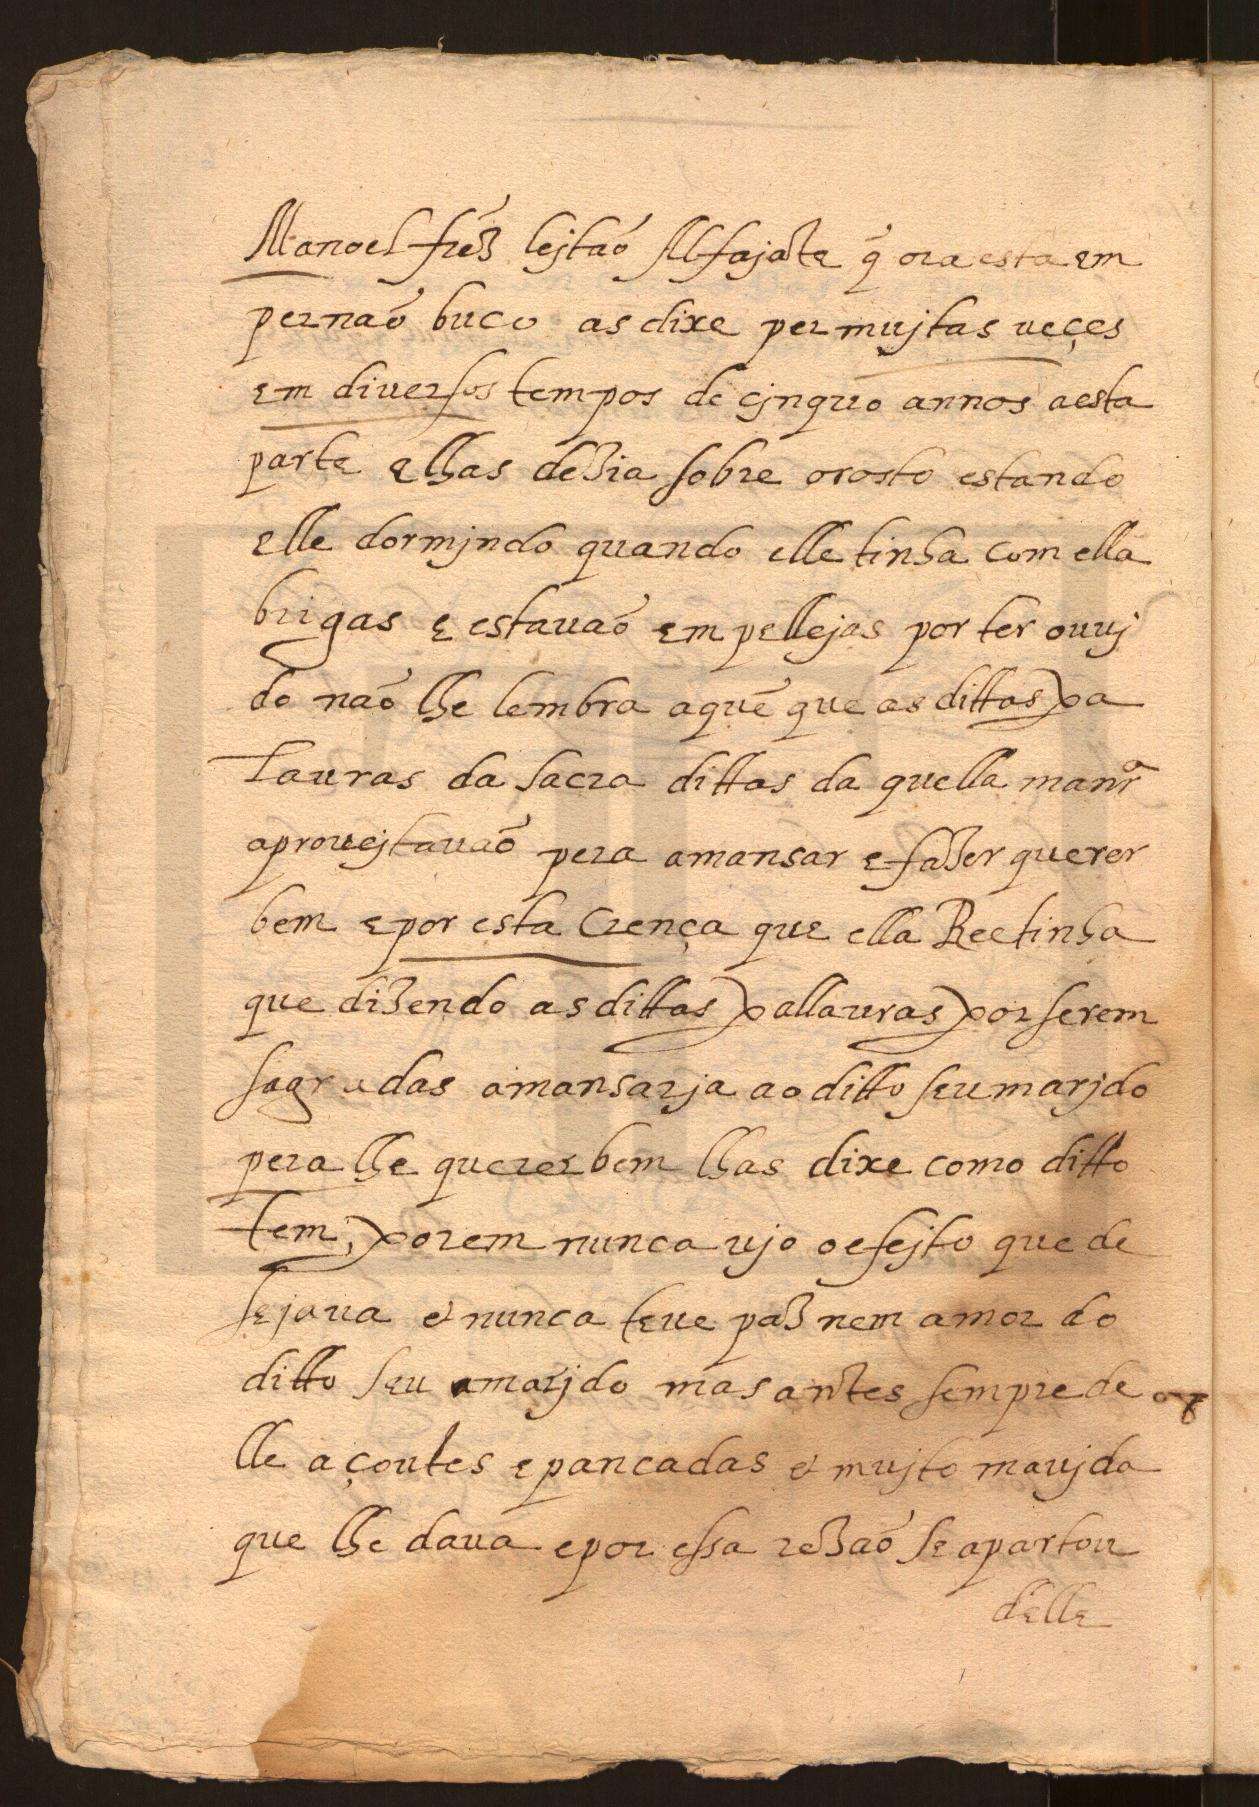 Manoel frz̃ lejtaõ Alfajate q̃ ora esta em
pernaõ buco as dixe per mujtas ueçes
em diuersos tempos de cjnquo annos aesta
parte e lhas deZia sobre orosto estando
elle dormjndo quando elle tinha com ella
brigas e estauaõ em pellejas por ter ouuj
do naõ lhe lembra aquẽ que as dittas pa
lauras da sacra dittas da quella manrª
aprouejtauaõ pera amansar e faZer querer
bem e por esta Crença que ella Reetinha
que diZendo as dittas pallauras por serem
sagradas amansarja ao ditto seu marjdo
pera lhe querer bem lhas dixe como ditto
tem, porem nunca ujo o efejto que de
sejaua e nunca teue paZ nem amor do
ditto seu marjdo mas antes sempre de
lle açoutes e pancadas e mujto maujda
que lhe daua e por essa reZaõ se apartou
delle